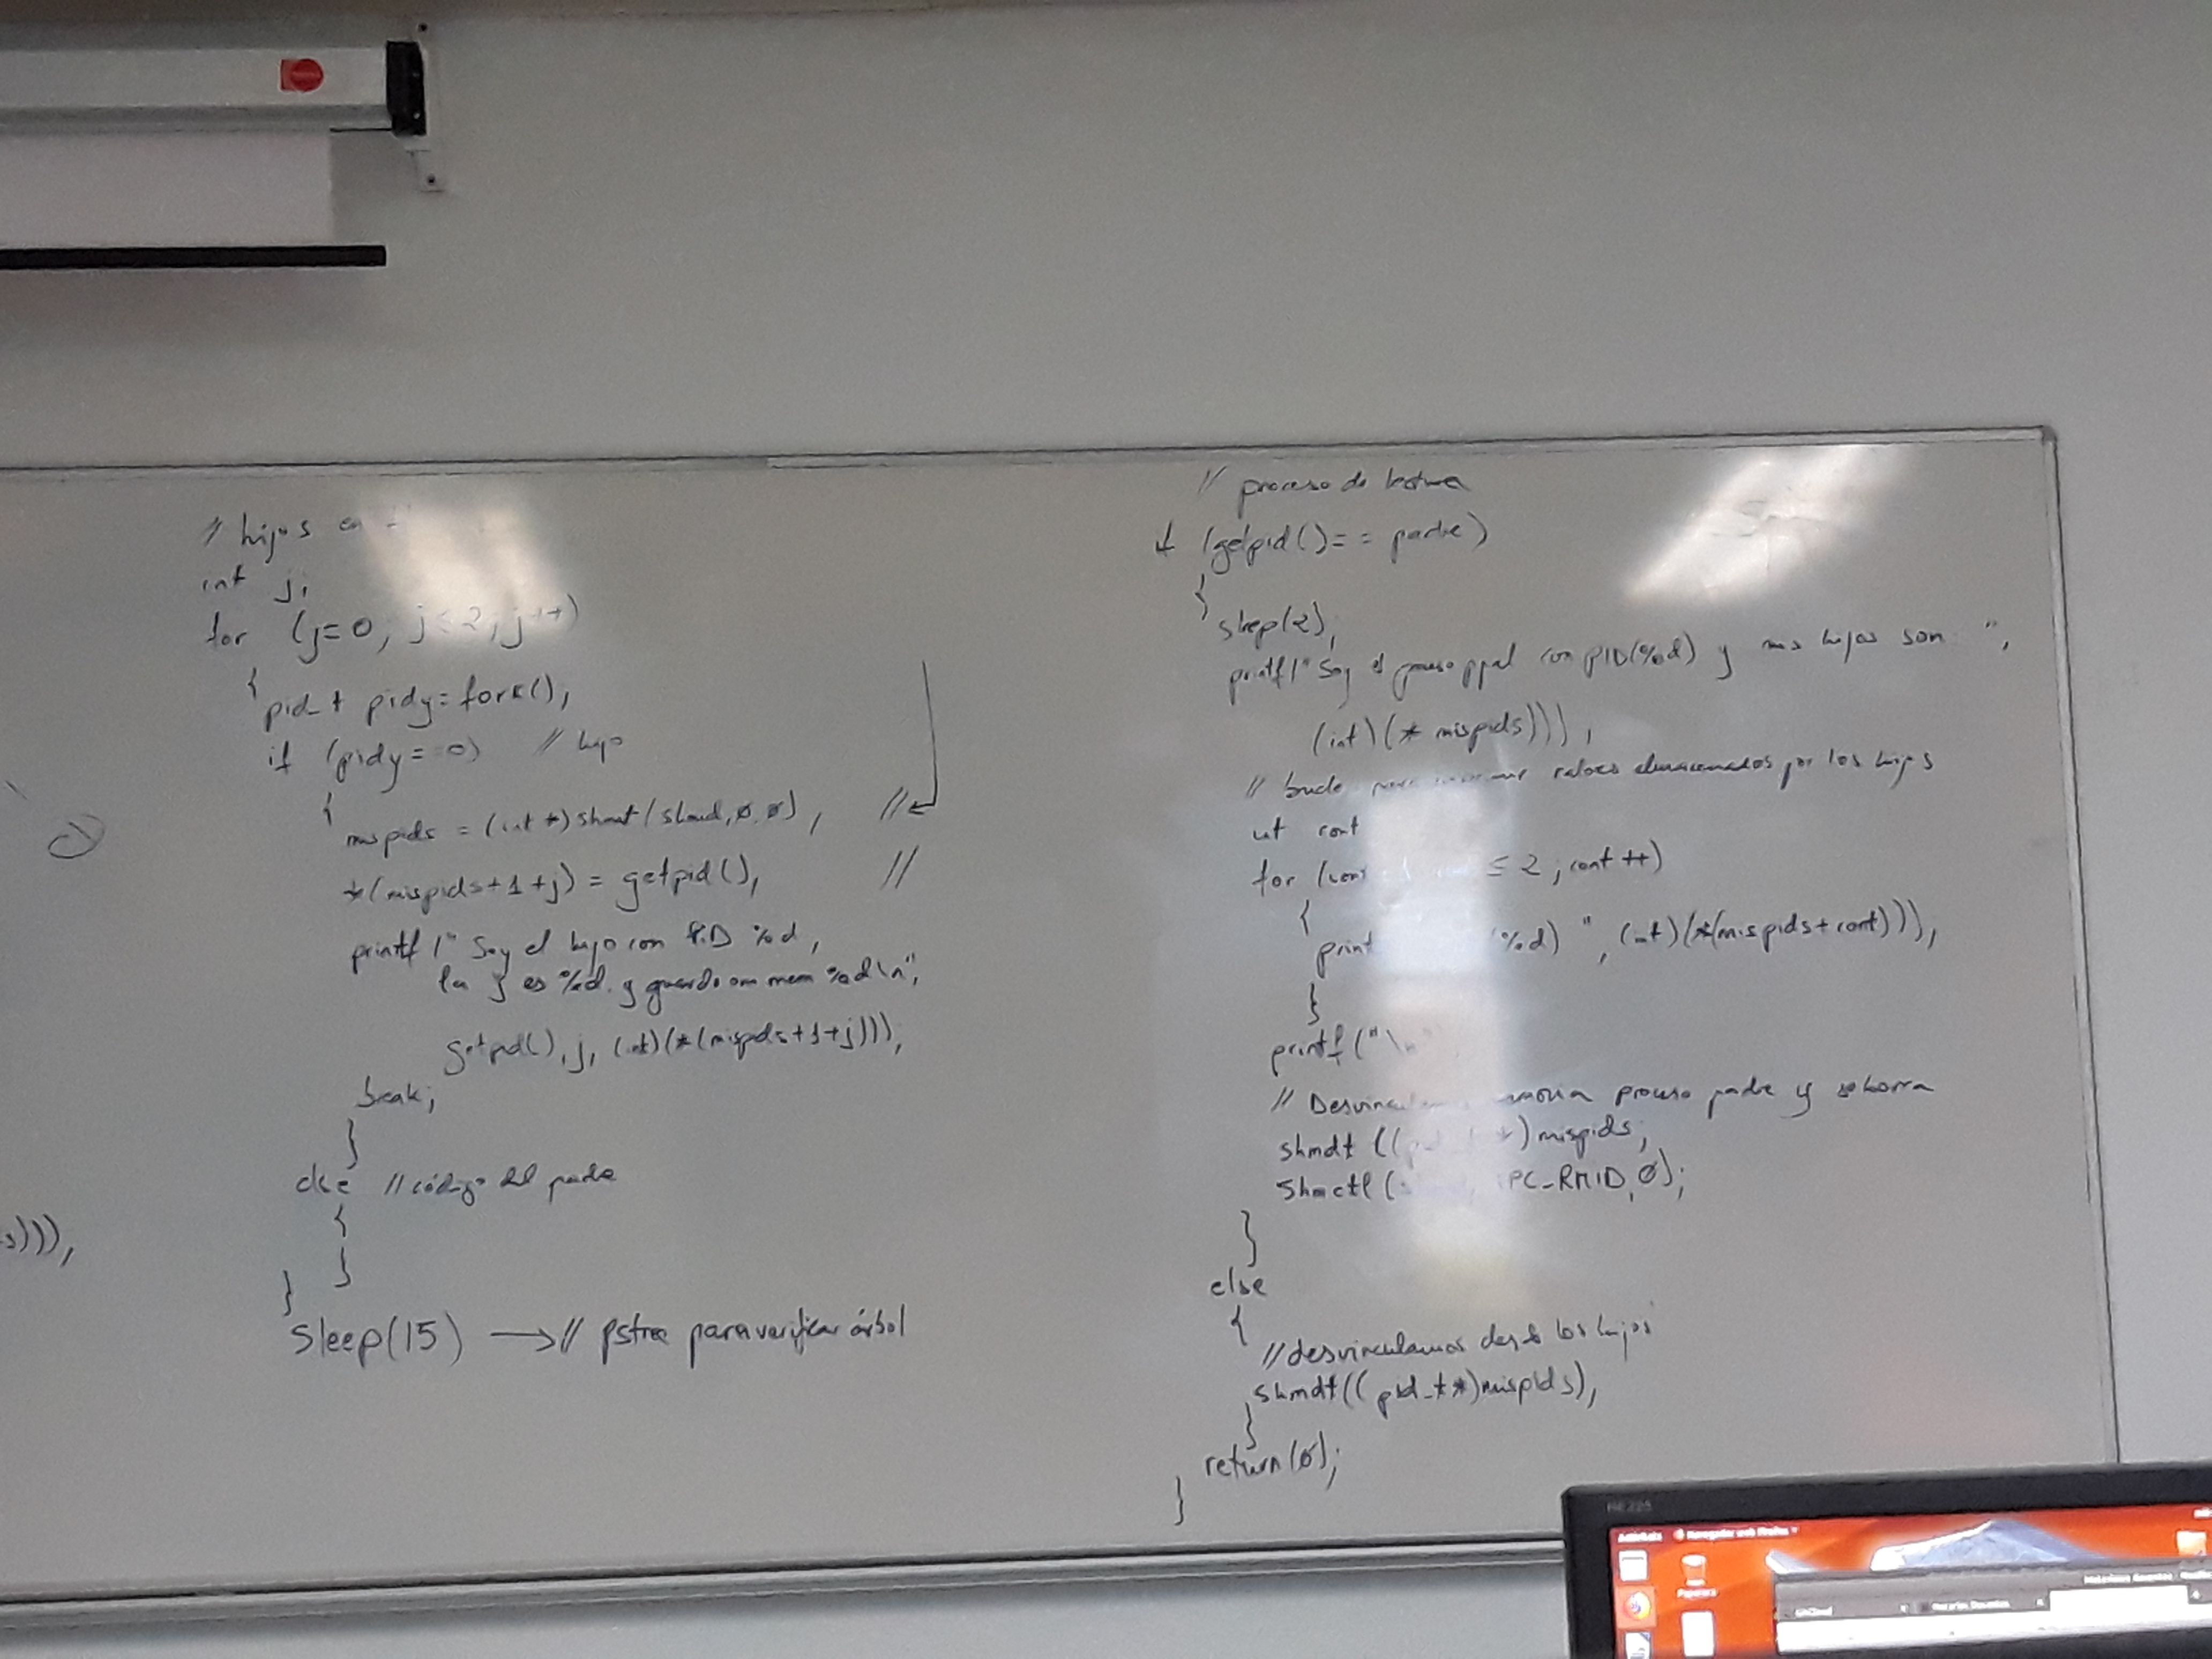 // hijos en
int j;
for (j=0; j<2; j++)
{
pid_t pidy=fork();
if (pidy==0) // hijo
{
mispids = (int *)shmat(shmid,0,0); //
*(mispids+1+j) = getpid(); //
printf (" Soy el hijo con PID %d,
la j es %d. y guardo en mem %d\n",
getpid(), j, (int)(*(mispids+1+j)));
break;
}
else // código del padre
{
}
}
sleep(15) → // pstree para verificar árbol
s)));
// proceso de lectura
if (getpid()== padre)
{
sleep(2);
printf(" Soy el proceso ppal con PID(%d) y mis hijos son: ",
(int)(* mispids)));
// bucle para valores almacenados por los hijos
int cont
for (cont ≤ 2; cont ++)
{
print %d) ", (int)(*(mispids+cont)));
}
printf ("\n"
// Desvincul memoria proceso padre y se borra
shmdt (( *)mispids;
shmctl ( IPC_RMID, 0);
}
else
{
//desvinculamos desde los hijos
shmdt(( pid_t *)mispids);
}
return (0);
}